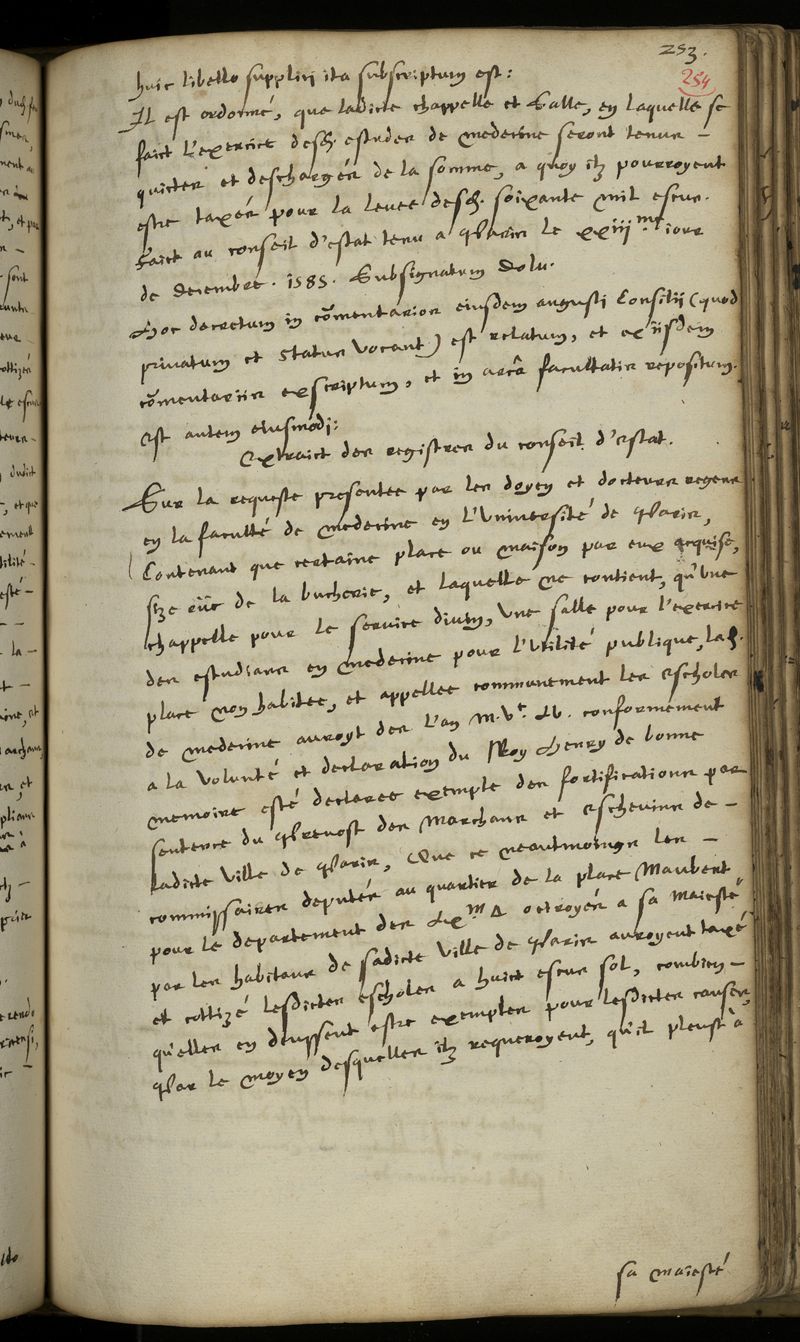 253.
254
huic libello supplici ita subscriptum est:
Il est ordonné, que ladicte chappelle et Salle, en laquelle se
faict l'exercice desd. estudes de medecine seront tenus –
quictes et deschargés de la somme, a quoy ilz pourroyent
estre taxés pour la levee desd. soixante mil escus.
Faict au conseil d'estat tenu a Paris le xxiii.me iour
de decembre. 1585. Subsignatum Dolu.
Hoc decretum in commentarios eiusdem augusti Consilij (quod
privatum et status vocant) est relatum, et ex iisdem
commentariis exscriptum, et in arcâ facultatis repositum.
est autem eiusmodi:
Extraict des registres du conseil d'estat.
Sur la requeste presentee par les doyen et docteurs regens
en la faculté de medecine en l'Université de Paris,
Contenant que certaine place ou maison par eux acquise,
size rue de la bucherie, et laquelle ne contient, qu'une
chappelle pour le service divin, une salle pour l'exercice
des estudians en medecine pour l'utilité publique, lad.
place non habitee, et appellee communement les escholes
de medecine auroyt des l'an M.Vc. Lv. conformement
a la volunté et declaration du Roy Henry de bonne
memoire esté declaree exempte des fortifications par
sentence du Prevost des Marchans et eschevins de –
ladicte ville de Paris, Que ce neantmoings les –
commissaires deputés au quartier de la place Maubert
pour le departement des Lxm ∆ octroyés a sa Maiesté
par les habitans de sadicte ville de Paris auroyent taxé
et cottizé lesdictes escholes a huict escus sol, combien –
qu'elles en deussent estre exemptes pour lesdictes causes,
Par le moyen desquelles ilz requeroyent, qu'il pleust à
sa maiesté